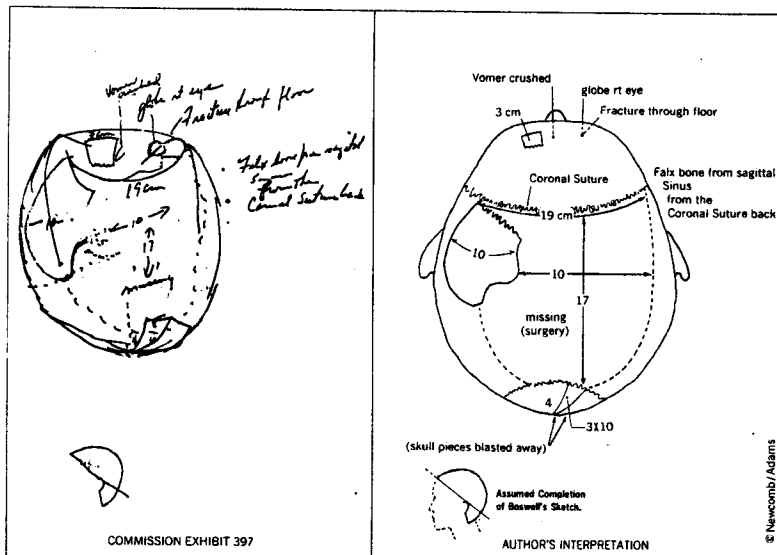 Vomer
crushed
globe rt eye
Fracture through floor
3 cm
19 cm
Falx bone from sagittal
Sinus
from the
Coronal Suture back
10
17
missing
COMMISSION EXHIBIT 397
Vomer crushed
globe rt eye
3 cm
Fracture through floor
Coronal Suture
Falx bone from sagittal
Sinus
from the
Coronal Suture back
19 cm
10
10
17
missing
(surgery)
4
3X10
(skull pieces blasted away)
Assumed Completion
of Boswell's Sketch.
AUTHOR'S INTERPRETATION
© Newcomb/Adams